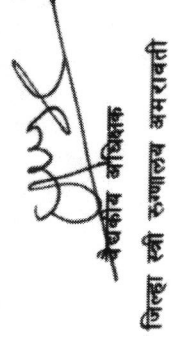 वैद्यकीय अधिक्षक
जिल्हा स्त्री रुग्णालय अमरावती